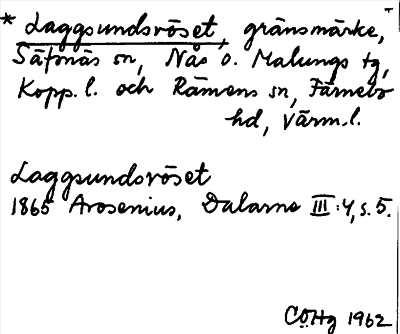 * Laggsundsröset, gränsmärke,
Säfsnäs sn, Nås o. Malungs tg,
Kopp. l. och Rämens sn, Färnebo
hd, Värm. l.
Laggsundsröset
1865 Arosenius, Dalarne III:4, s. 5.
CÖHg 1962